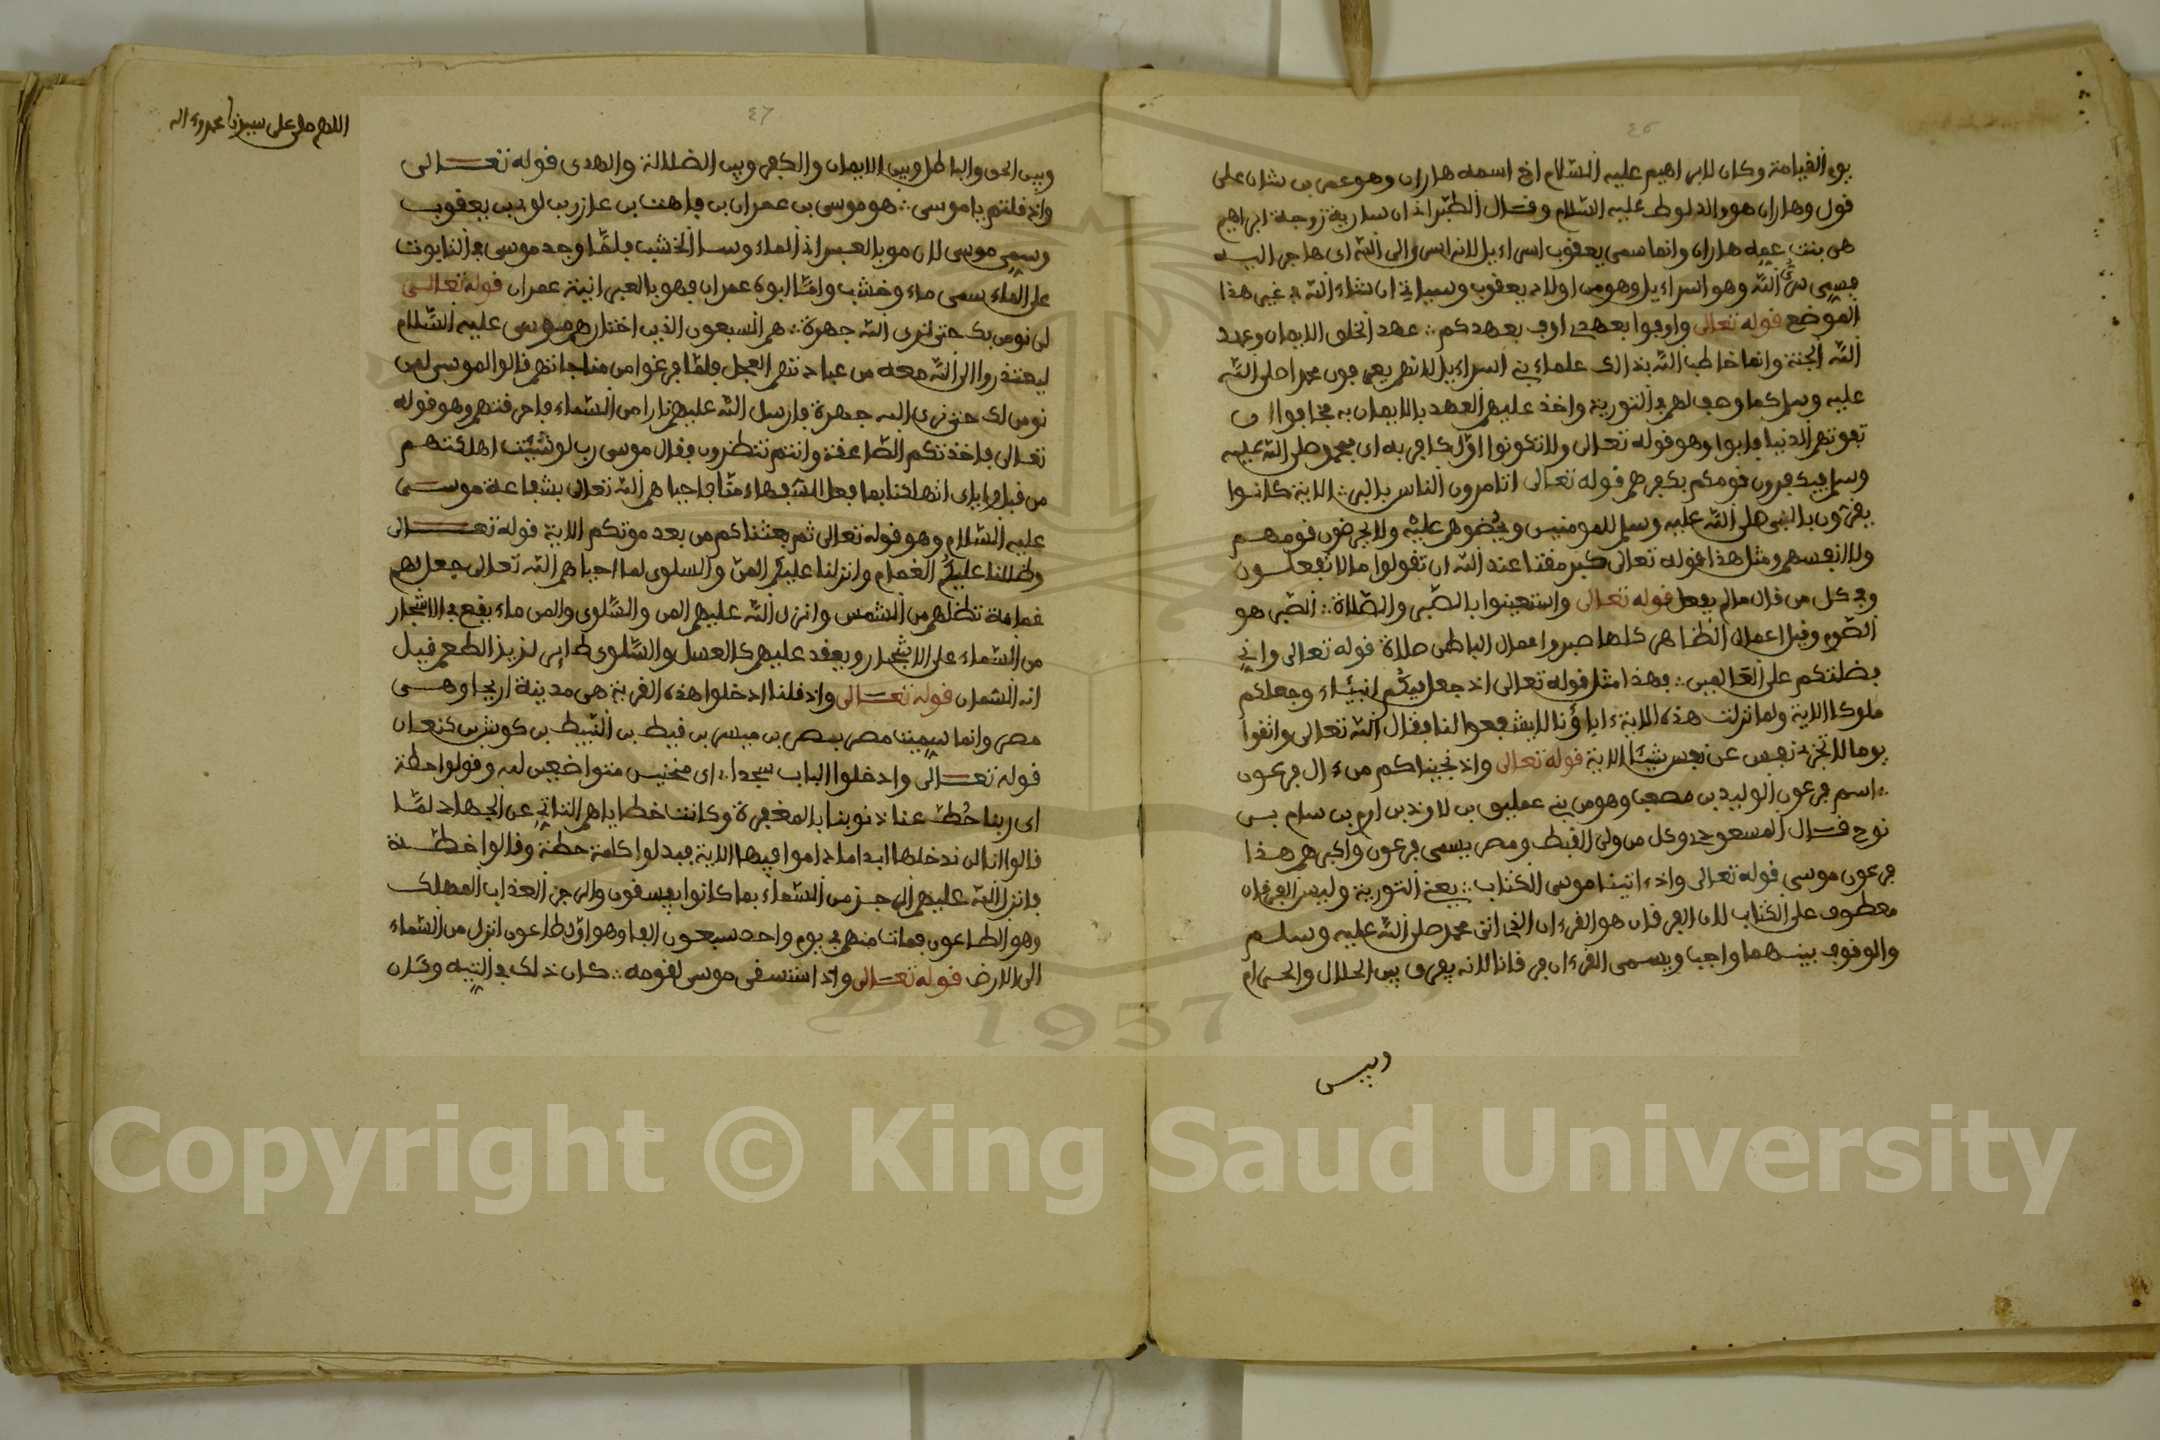 ٤٥
يوم القيامة وكان لابراهيم عليه السلام اخ اسمه هاران وهو عمر بن شان على
قول وهاران هو والد لوط عليه السلام وقال الطبر اذ ان سارية زوجة ابراهيم
هى بنت عمه هاران وانما سمى يعقوب اسراءيل لانه اسرى الى الله اى هاجر اليه
فسمى سرى الله وهو اسراءيل وهو من اولاد يعقوب وسياتي ان شاء الله في غير هذا
الموضع قوله تعالى واوفوا بعهدي اوف بعهدكم ∴ عهد الخلق الايمان وعهد
الله الجنة وانما خاطب الله بذالك علماء بني اسراءيل لانهم يعرفون محمدا صلى الله
عليه وسلم كما وصف لهم في التورية واخذ عليهم العهد بالايمان به فخافوا ان
تفوتهم الدنيا فابوا وهو قوله تعالى ولا تكونوا اول كافر به اى بمحمد صلى الله عليه
وسلم فيكفرون قومكم بكفرهم قوله تعالى اتامرون الناس بالبر ∴ الاية كانوا
يقرون بالنبى صلى الله عليه وسلم للمومنين ويحضوهم عليه ولا يحرضون قومهم
ولا انفسهم ومثل هذا قوله تعالى كبر مقتا عند الله ان تقولوا مالا تفعلون
وفي كل من قال مالم يفعل قوله تعالى واستعينوا بالصبر والصلاة ∴ الصبر هو
الصوم وقيل اعمال الظاهر كلها صبر واعمال الباطن صلاة قوله تعالى واني
فضلتكم على العالمين ∴ فهذا مثل قوله تعالى اذ جعل فيكم انبياء وجعلكم
ملوكا الاية ولما نزلت هذه الاية ءاباؤنا لا يشفعوا لنا فقال الله تعالى واتقوا
يوما لا تجزي نفس عن نفس شيئا الاية قوله تعالى واذ نجيناكم من ءال فرعون
∴ اسم فرعون الوليد بن مصعب وهو من بني عمليق بن لاوذ بن ارم بن سام بن
نوح قال المسعودي وكل من ولى القبط ومصر يسمى فرعون واكبرهم هذا
فرعون موسى قوله تعالى واذ ءاتينا موسى الكتاب ∴ يعني التورية وليس الفرقان
معطوف على الكتاب لان الفرقان هو القرءان الذي اتى محمد صلى الله عليه وسلم
والوقوف بينهما واجب ويسمى القرءان فرقانا لانه يفرق بين الحلال والحرام
وبين
٤٦
اللهم صل على سيدنا محمد وءاله
وبين الحق والباطل وبين الايمان والكفر وبين الضلالة والهدى قوله تعالى
واذ قلتم يا موسى ∴ هو موسى بن عمران بن قاهت بن عازر بن لوى بن يعقوب
وسمى موسى لان مو بالعبراذ الماء وسا الخشب فلما وجد موسى في التابوت
على الماء سمى ماء وخشب واما ابوه عمران فهو بالعبرانية عمران قوله تعالى
لن نومن بك حتى نرى الله جهرة ∴ هم السبعون الذين اختارهم موسى عليه السلام
ليعتذروا الى الله معه من عبادتهم العجل فلما فرغوا من مناجاتهم قالوا لموسى لن
نومن لك حتى نرى الله جهرة فارسل الله عليهم نارا من السماء فاحرقتهم وهو قوله
تعالى فاخذتكم الصاعقة وانتم تنظرون فقال موسى رب لو شئت اهلكتهم
من قبل واياى اتهلكنا بما فعل السفهاء منا فاحياهم الله تعالى بشفاعة موسى
عليه السلام وهو قوله تعالى ثم بعثناكم من بعد موتكم الاية قوله تعالى
وظللنا عليكم الغمام وانزلنا عليكم المن والسلوى لما احياهم الله تعالى جعل لهم
غمامة تظلهم من الشمس وانزل الله عليهم المن والسلوى والمن ماء يقع في الاشجار
من السماء على الاشجار ويعقد عليهم كالعسل والسلوى طاير لذيذ الطعم قيل
انه السمان قوله تعالى واذ قلنا ادخلوا هذه القرية هى مدينة اريحا وهى
مصر وانما سميت مصر بمصر بن ميسر بن قبط بن النبيط بن كوش بن كنعان
قوله تعالى وادخلوا الباب سجدا ∴ اى منحنين متواضعين لله وقولوا حطة
اى ربنا حُط عنا ذنوبنا بالمغفرة وكانت خطاياهم التاني عن الجهاد لما
قالوا انا لن ندخلها ابدا ما داموا فيها الاية فبدلوا كلمة حطة وقالوا خطة
فانزل الله عليهم الرجز من السماء بما كانوا يفسقون والرجز العذاب المهلك
وهو الطاعون فمات منهم في يوم واحد سبعون الفا وهو اول طاعون انزل من السماء
الى الارض قوله تعالى واذ استسقى موسى لقومه ∴ كان ذلك في التيه وكان